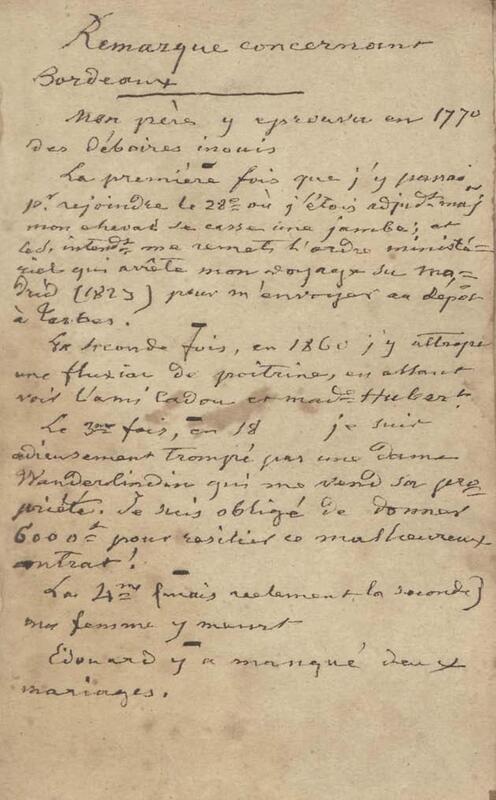 Remarque concernant
Bordeaux
Mon père y eprouva en 1770
des déboires inouis
La première fois que j'y passai
pr rejoindre le 28e où j'étois adjudt maj
mon cheval se casse une jambe; et
le s. intendt me remets l'ordre ministé-
riel qui arrête mon voyage su Ma-
drid (1823) pour m'envoyer au depôt
à Tarbes.
La seconde fois, en 1860 j'y attrape
une fluxion de poitrine, en allant
voir l'ami Cadou et made Hubert.
La 3me fois, en 18 je suis
odieusement trompé par une dame
Wanderlindin qui me vend sa pro-
priété. Je suis obligé de donner
6000f pour resilier ce malheureux
contrat!
La 4me (mais reelement la seconde)
ma femme y meurt
Edouard y a manqué deux
mariages.